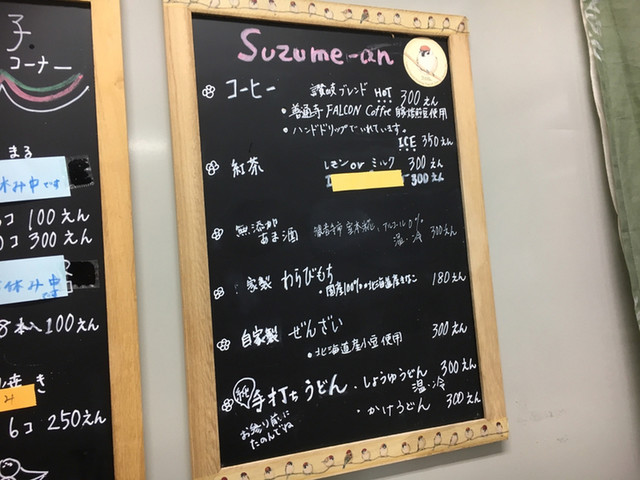 子
コーナー
まる
休み中です
コ 100えん
コ 300えん
休み中
です
8本入 100えん
焼き
み
6コ 250えん
Suzume-an
コーヒー 讃岐ブレンド HOT 300えん
・善通寺 FALCON Coffee 豚焙煎豆使用
・ハンドドリップでいれています。
ICE 350えん
紅茶 レモン or ミルク 300えん
300えん
無添加 あま酒 アルコール0% 温・冷 300えん
自家製 わらびもち 180えん
・国産100%の北海道産きなこ
自家製 ぜんざい 300えん
・北海道産小豆使用
手打ちうどん ・しょうゆうどん 300えん
温・冷
・かけうどん 300えん
お帰り前に
たのんでね